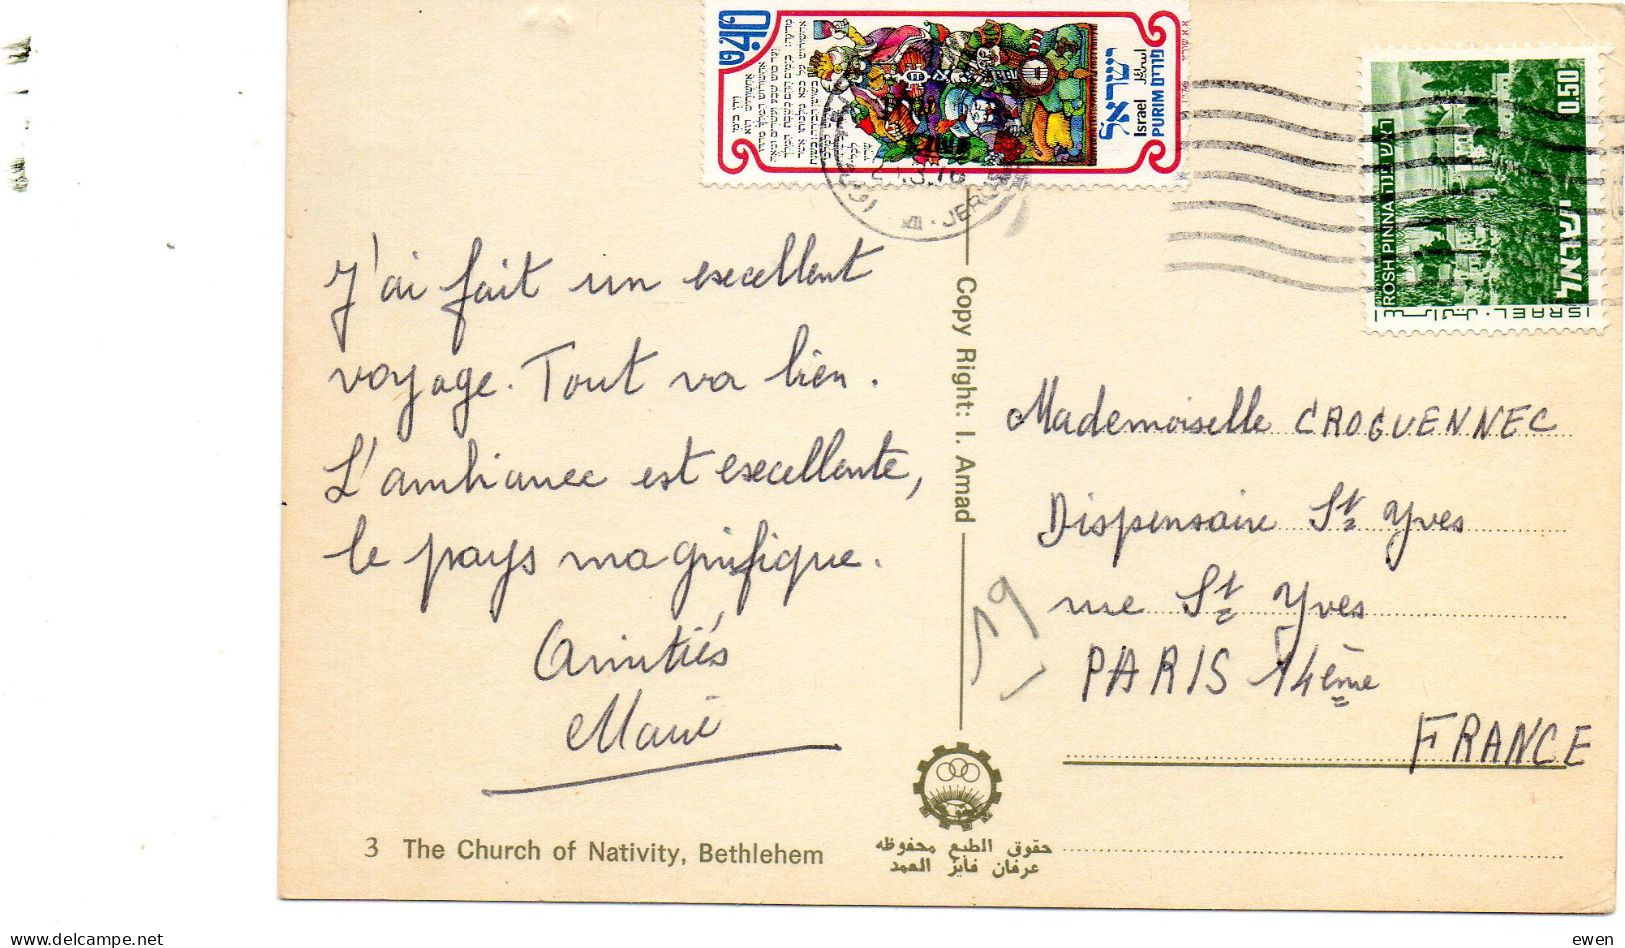 J'ai fait un excellent
voyage. Tout va bien.
L'ambiance est excellente,
le pays magnifique.
Amitiés
Marie
3 The Church of Nativity, Bethlehem
Copy Right: I. Amad
حقوق الطبع محفوظه
عرفان فايز العمد
0.40
ישראל
Israel اسرائيل
PURIM פורים
JER
0.50
ROSH PINNA ראש פינה
ישראל
ISRAEL
Mademoiselle CROGUENNEC
Dispensaire St Yves
rue St Yves
PARIS 14ème
FRANCE
19
www.delcampe.net
ewen